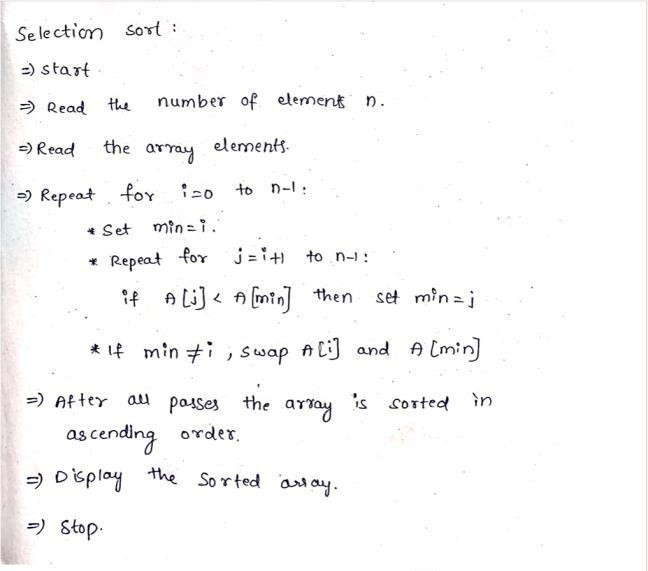 Selection sort :
⇒ start
⇒ Read the number of element n.
⇒ Read the array elements.
⇒ Repeat for i=0 to n-1 :
* Set min=i.
* Repeat for j=i+1 to n-1 :
if A[j] < A[min] then set min=j
* If min ≠ i , swap A[i] and A[min]
⇒ After all passes the array is sorted in
ascending order.
⇒ Display the sorted array.
⇒ Stop.